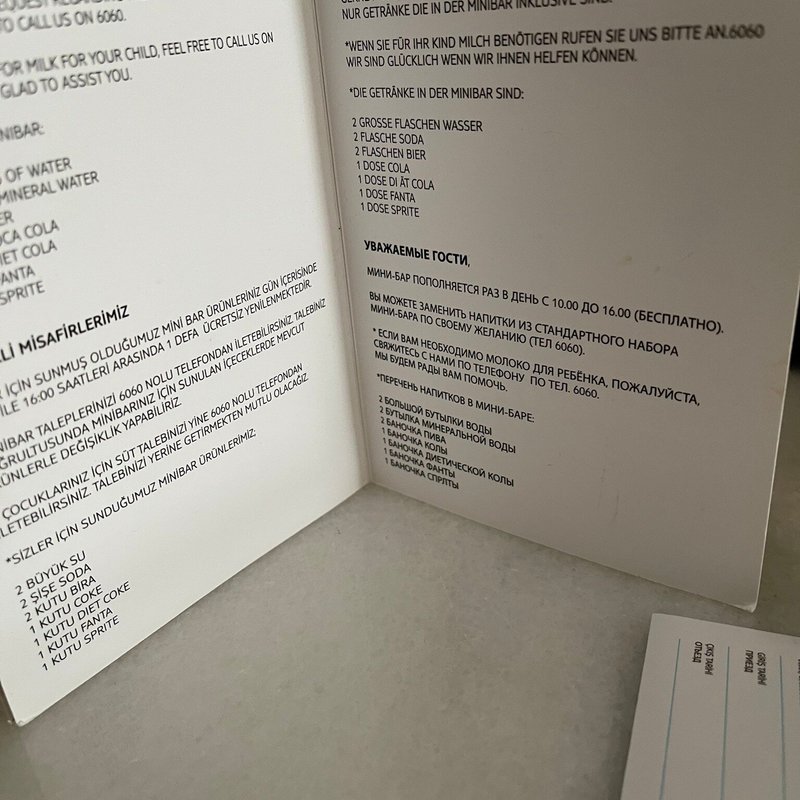 TO CALL US ON 6060.
FOR MILK FOR YOUR CHILD, FEEL FREE TO CALL US ON
GLAD TO ASSIST YOU.
NIBAR:
OF WATER
MINERAL WATER
ER
OCA COLA
IET COLA
ANTA
SPRITE
Lİ MİSAFİRLERİMİZ
İÇİN SUNMUŞ OLDUĞUMUZ MİNİ BAR ÜRÜNLERİNİZ GÜN İÇERİSİNDE
İLE 16:00 SAATLERİ ARASINDA 1 DEFA ÜCRETSİZ YENİLENMEKTEDİR.
NİBAR TALEPLERİNİZİ 6060 NOLU TELEFONDAN İLETEBİLİRSİNİZ. TALEBİNİZ
ĞRULTUSUNDA MİNİBARINIZ İÇİN SUNULAN İÇECEKLERDE MEVCUT
ÜNLERLE DEĞİŞİKLİK YAPABİLİRİZ.
ÇOCUKLARINIZ İÇİN SÜT TALEBİNİZİ YİNE 6060 NOLU TELEFONDAN
LETEBİLİRSİNİZ. TALEBİNİZİ YERİNE GETİRMEKTEN MUTLU OLACAĞIZ.
*SİZLER İÇİN SUNDUĞUMUZ MİNİBAR ÜRÜNLERİMİZ:
2 BÜYÜK SU
2 ŞİŞE SODA
2 KUTU BİRA
1 KUTU COKE
1 KUTU DIET COKE
1 KUTU FANTA
1 KUTU SPRITE
NUR GETRÄNKE DIE IN DER MINIBAR INKLUSIVE SIND.
*WENN SIE FÜR IHR KIND MILCH BENÖTIGEN RUFEN SIE UNS BITTE AN.6060
WIR SIND GLÜCKLICH WENN WIR IHNEN HELFEN KÖNNEN.
*DIE GETRÄNKE IN DER MINIBAR SIND:
2 GROSSE FLASCHEN WASSER
2 FLASCHE SODA
2 FLASCHEN BIER
1 DOSE COLA
1 DOSE DI ÄT COLA
1 DOSE FANTA
1 DOSE SPRITE
УВАЖАЕМЫЕ ГОСТИ,
МИНИ-БАР ПОПОЛНЯЕТСЯ РАЗ В ДЕНЬ С 10.00 ДО 16.00 (БЕСПЛАТНО).
ВЫ МОЖЕТЕ ЗАМЕНИТЬ НАПИТКИ ИЗ СТАНДАРТНОГО НАБОРА
МИНИ-БАРА ПО СВОЕМУ ЖЕЛАНИЮ (ТЕЛ 6060).
* ЕСЛИ ВАМ НЕОБХОДИМО МОЛОКО ДЛЯ РЕБЁНКА, ПОЖАЛУЙСТА,
СВЯЖИТЕСЬ С НАМИ ПО ТЕЛЕФОНУ ПО ТЕЛ. 6060.
МЫ БУДЕМ РАДЫ ВАМ ПОМОЧЬ.
*ПЕРЕЧЕНЬ НАПИТКОВ В МИНИ-БАРЕ:
2 БОЛЬШОЙ БУТЫЛКИ ВОДЫ
2 БУТЫЛКА МИНЕРАЛЬНОЙ ВОДЫ
2 БАНОЧКА ПИВА
1 БАНОЧКА КОЛЫ
1 БАНОЧКА ДИЕТИЧЕСКОЙ КОЛЫ
1 БАНОЧКА ФАНТЫ
1 БАНОЧКА СПРЛТЫ
GİRİŞ TARİHİ
ПРИЕЗД
ÇIKIŞ TARİHİ
ОТЪЕЗД